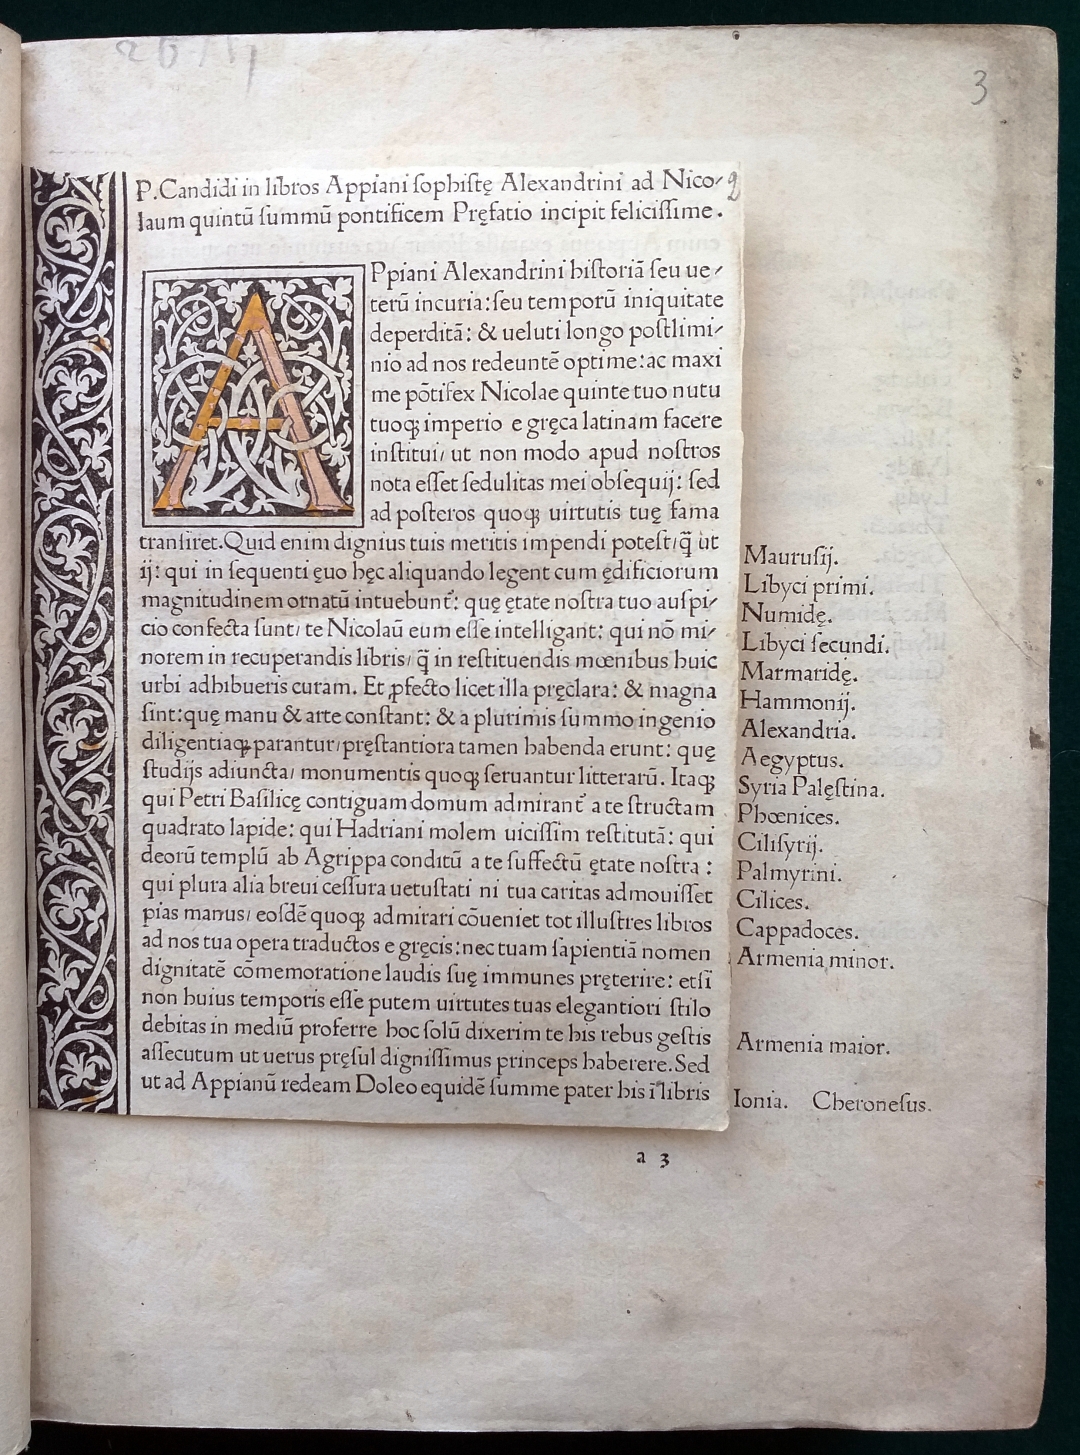 3
P.Candidi in libros Appiani ſophiſtę Alexandrini ad Nico-
laum quintū ſummū pontificem Pręfatio incipit feliciſſime.
2
APpiani Alexandrini hiſtoriā ſeu ue-
terū incuria:ſeu temporū iniquitate
deperditā: & ueluti longo poſtlimi-
nio ad nos redeuntē optime:ac maxi
me pōtifex Nicolae quinte tuo nutu
tuoqꝫ imperio e gręca latinam facere
inſtitui/ ut non modo apud noſtros
nota eſſet ſedulitas mei obſequij: ſed
ad poſteros quoqꝫ uirtutis tuę fama
tranſiret.Quid enim dignius tuis meritis impendi poteſt/q̄ ut
ij: qui in ſequenti ęuo hęc aliquando legent cum ędificiorum
magnitudinem ornatū intuebunt᷑: quę ętate noſtra tuo auſpi-
cio confecta ſunt/ te Nicolaū eum eſſe intelligant: qui nō mi-
norem in recuperandis libris/ q̄ in reſtituendis mœnibus huic
urbi adhibueris curam. Et ꝓfecto licet illa pręclara: & magna
ſint:quę manu & arte conſtant: & a plurimis ſummo ingenio
diligentiaqꝫ parantur/pręſtantiora tamen habenda erunt: quę
ſtudijs adiuncta/ monumentis quoqꝫ ſeruantur litterarū. Itaqꝫ
qui Petri Baſilicę contiguam domum admirant᷑ a te ſtructam
quadrato lapide: qui Hadriani molem uiciſſim reſtitutā: qui
deorū templū ab Agrippa conditū a te ſuffectū ętate noſtra :
qui plura alia breui ceſſura uetuſtati ni tua caritas admouiſſet
pias manus/ eoſdē quoqꝫ admirari cōueniet tot illuſtres libros
ad nos tua opera traductos e gręcis:nec tuam ſapientiā nomen
dignitatē cōmemoratione laudis ſuę immunes pręterire: etſi
non huius temporis eſſe putem uirtutes tuas elegantiori ſtilo
debitas in mediū proferre hoc ſolū dixerim te his rebus geſtis
aſſecutum ut uerus pręſul digniſſimus princeps haberere.Sed
ut ad Appianū redeam Doleo equidē ſumme pater his ī libris
Mauruſij.
Libyci primi.
Numidę.
Libyci ſecundi.
Marmaridę.
Hammonij.
Alexandria.
Aegyptus.
Syria Palęſtina.
Phœnices.
Ciliſyrij.
Palmyrini.
Cilices.
Cappadoces.
Armenia minor.
Armenia maior.
Ionia. Cheroneſus.
a 3